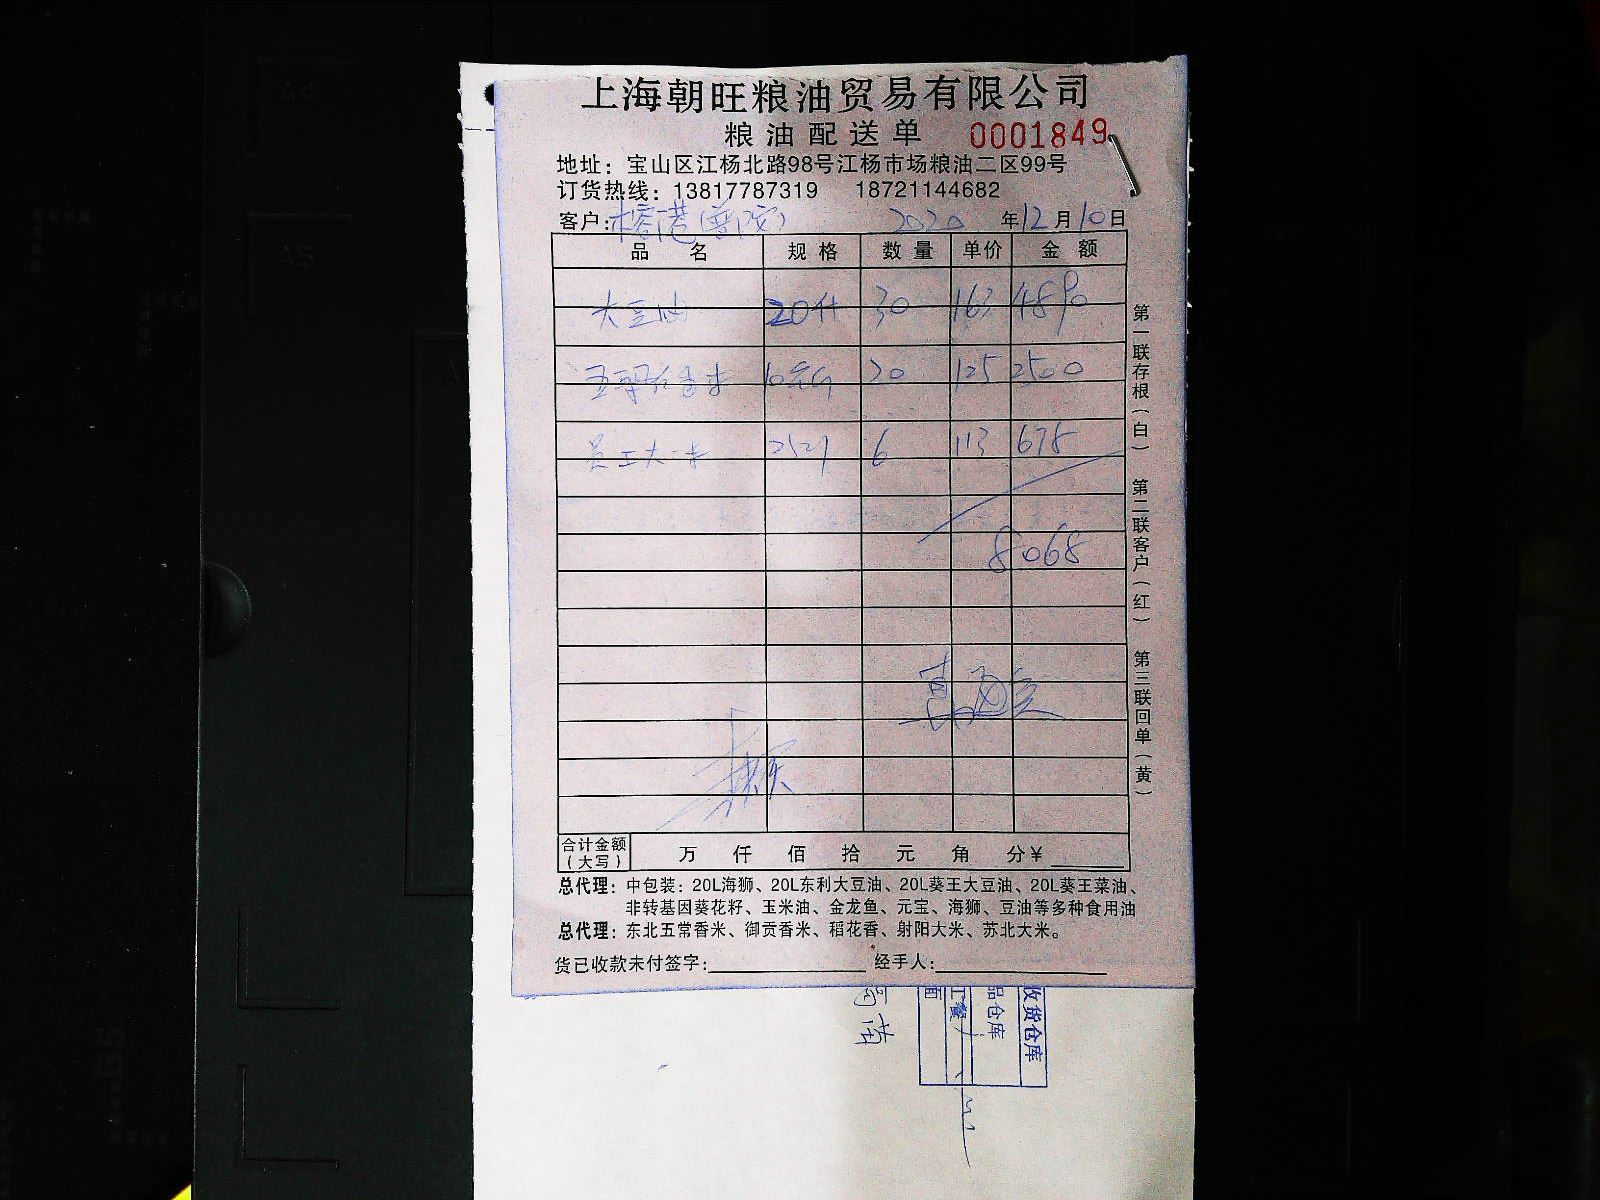 上海朝旺粮油贸易有限公司
粮油配送单 0001849
地址：宝山区江杨北路98号江杨市场粮油二区99号
订货热线：13817787319 18721144682
客户：榕港 2020 年12月10日
品 名 规 格 数 量 单价 金 额
大豆油 20升 30 163 4890
五朝 香米 10公斤 20 125 2500
员工大米 25kg 6 113 678
8068
第一联存根（白） 第二联客户（红） 第三联回单（黄）
合计金额（大写） 万 仟 佰 拾 元 角 分¥
总代理：中包装：20L海狮、20L东利大豆油、20L葵王大豆油、20L葵王菜油、
非转基因葵花籽、玉米油、金龙鱼、元宝、海狮、豆油等多种食用油
总代理：东北五常香米、御贡香米、稻花香、射阳大米、苏北大米。
货已收款未付签字: 经手人:
收货仓库
品仓库
工餐
面